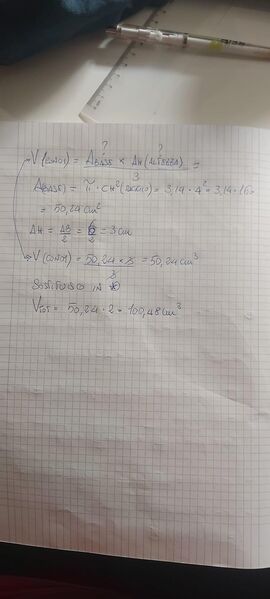 ? ?
V(CONO1) = ABASE × AH (ALTEZZA) =
3
ABASE1 = π · CH² (RAGGIO) = 3,14 · 4² = 3,14 · 16 =
= 50,24 cm²
AH = AB = 6 = 3 cm
2 2
V(CONO1) = 50,24 × 3 = 50,24 cm³
3
SOSTITUISCO IN
VTOT = 50,24 · 2 = 100,48 cm³